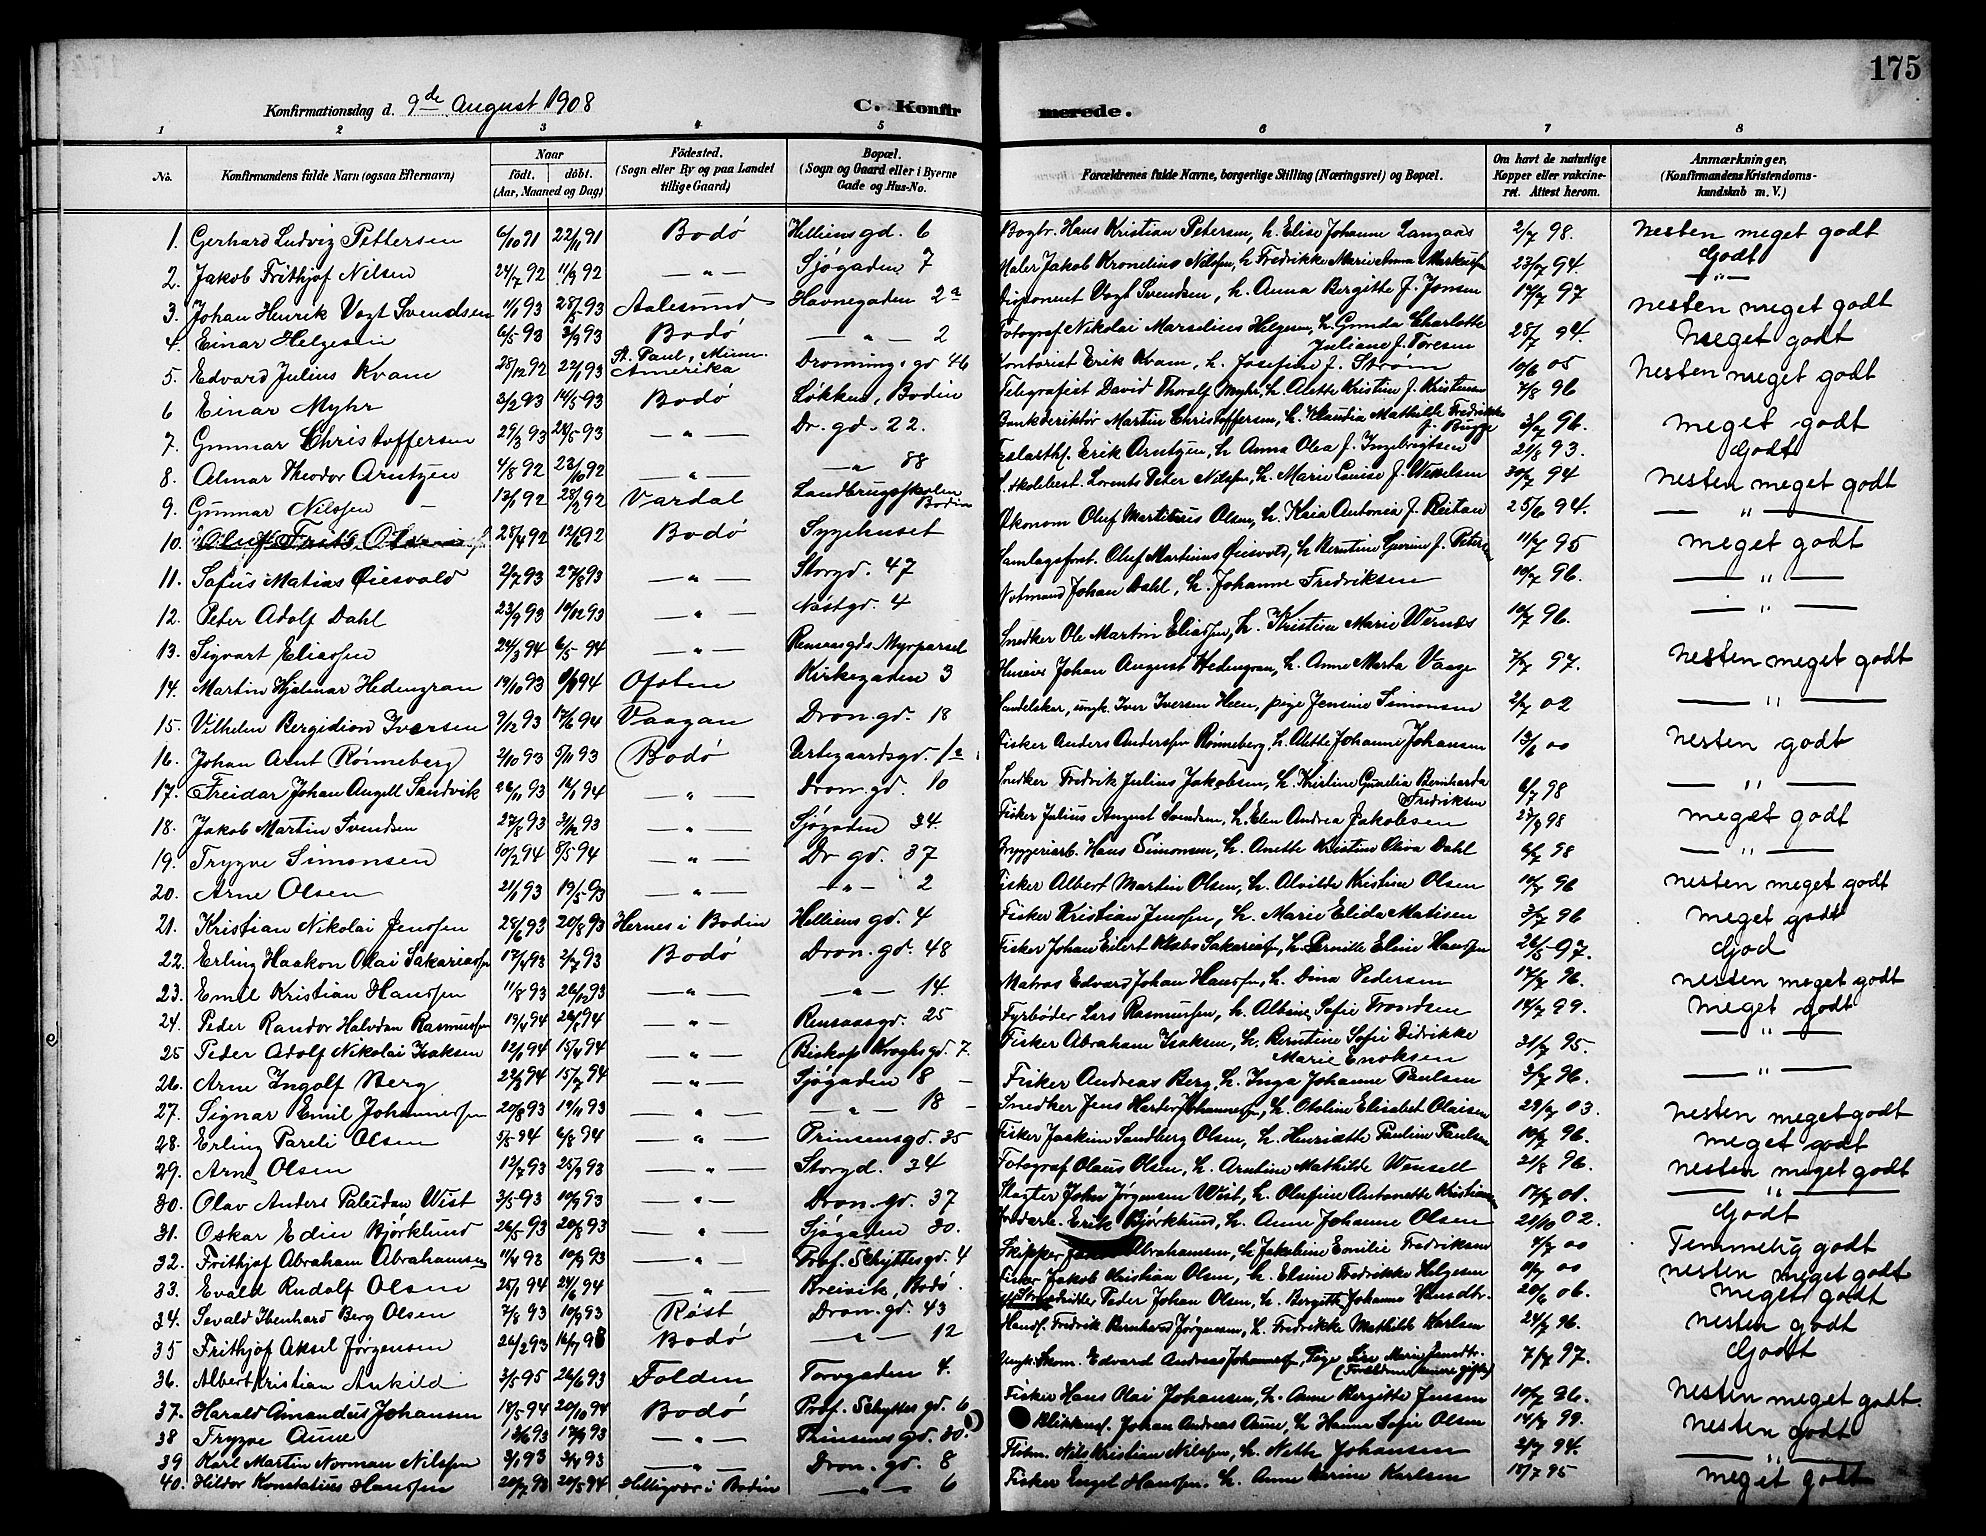 175
Konfirmationsdag d. 9de August 1908 C. Konfir merede.
1 2 3 4 5 6 7 8
No. Konfirmandens fulde Navn (ogsaa Efternavn) Naar født. døbt. (Aar, Maaned og Dag) Fødested. (Sogn eller By og paa Landet tillige Gaard) Bopæl. (Sogn og Gaard eller i Byerne Gade og Hus-No. Forældrenes fulde Navne, borgerlige Stilling (Næringsvei) og Bopæl. Om havt de naturlige Kopper eller vakcineret. Attest herom. Anmærkninger, (Konfirmandens Kristendomskundskab m. V.)
1. Gerhard Ludvig Pettersen 6/10 91 22/11 91 Bodø Helliensgd. 6 Bogbr. Hans Kristian Petersen, h. Elise Johanne Langaas 2/7 98. Nesten meget godt
2. Jakob Frithjof Nilsen 24/7 92 11/9 92 — " — Sjøgaden 7 Maler Jakob Kronelius Nilssen, h. Fredrikke Marie Anna Markussen 23/7 94. Godt
3. Johan Henrik Vogt Svendsen 11/1 93 28/5 93 Aalesund Havnegaden 2a Disponent Vogt Svendsen, h. Anna Bergitte f. Jonsen 14/7 97 — " —
4. Einar Helgesen 6/5 93 3/9 93 Bodø — " — 2 Fotograf Nikolai Marselius Helgesen, h. Gunda Charlotte Juliane f. Toresen 28/7 94. nesten meget godt
5. Edvard Julius Kvam 28/12 92 22/1 93 St. Paul, Minn. Amerika Dronning. gd 46 Kontorist Erik Kvam, h. Josefine f. Strøm 10/6 05 Meget godt
6 Einar Myhr 3/2 93 14/5 93 Bodø Løkken, Bodin Telegrafist David Thoralf Myhr, h. Alette Kristine f. Kristensen 7/8 96 Nesten meget godt
7. Gunnar Christoffersen 29/3 93 28/5 93 — " — Dr. gd. 22. Bankdirektør Martin Christoffersen, h. Klaudia Mathilde Fredrikke f. Brygge 3/7 96. meget godt
8. Almar Theodor Arntzen 4/8 92 23/10 92 — " — — " — 88 Erik Arntzen, h. Anna Olea f. Ingebrigtsen 21/8 93. Godt
9. Gunnar Nilssen 13/1 92 28/2 92 Vardal Landbrugsskolen Bodin Lorents Peter Nilssen, h. Marie Louise f. Wesselsen 30/7 94 Nesten meget godt
10. Oluf Frits Olsen 28/4 92 12/6 92 Bodø Sygehuset Økonom Oluf Martinius Olsen, h. Kaia Antonia f. Reitan 25/6 94. — " —
11. Sofus Matias Øiesvold 2/7 93 27/8 93 — " — Storgd. 47 Samlagsforst. Oluf Martinus Øiesvold, h. Berntine Gurine f. Petersen 11/7 95 meget godt
12. Peter Adolf Dahl 23/9 93 10/12 93 — " — Nøstgd. 4 Notmand Johan Dahl, h. Johanne Fredriksen 10/7 96. — " —
13. Sigvart Eliassen 24/3 94 6/5 94 — " — Rensaasgd. Myrparsel Snedker Ole Martin Eliassen, h. Kristine Marie Wernes 10/7 96. — " —
14. Martin Hjalmar Hedengran 19/10 93 94 Ofoten Kirkegaden 3 Huseier Johan August Hedengran, h. Anne Marta Vaage 7/7 97. Nesten meget godt
15. Vilhelm Bergidion Iversen 9/12 93 17/6 94 Vaagan Dron. gd. 18 Handelskar, ungk. Iver Iversen Heen, pige Jensine Simonsen 2/7 02 — " —
16. Johan Arnt Rønneberg 2/10 93 5/11 93 Bodø Urtegaardsgd. 1a Fisker Anders Anderssen Rønneberg, h. Alette Johanne Johansen 13/6 00 Nesten godt
17. Freidar Johan Angell Sandvik 26/11 93 14/1 94 — " — Dron. gd. 10 Snedker Fredrik Julius Jakobsen, h. Kirstine Bernharda Fredriksen 6/7 98 — " —
18. Jakob Martin Svendsen 27/8 93 31/12 93 — " — Sjøgaden 34. Fisker Julius August Svendsen, h. Elen Andrea Jakobsen 27/9 98 meget godt
19. Trygve Simonsen 10/2 94 8/5 94 — " — Dr gd. 37 Bryggeriarb. Hans Simonsen, h. Anette Kristine Oliva Dahl 6/7 98 — " —
20. Arne Olsen 21/1 93 19/5 93 — " — — " — 2 Fisker Albert Martin Olsen, h. Alvilde Kristine Olsen 10/7 96 nesten meget godt
21. Kristian Nikolai Jenssen 28/6 93 20/8 93 Hernes i Bodin Helliensgd. 4 Fisker Kristian Jenssen, h. Marie Elida Matisen 3/7 96 meget godt
22. Erling Haakon Olai Sakariassen 17/4 93 2/7 93 Bodø Dron. gd. 48 Fisker Johan Eilert Klæbo Sakariassen, h. Pernille Eline Hanssen 26/5 97. God
23. Emil Kristian Hanssen 11/8 93 26/12 93 — " — — " — 14. Matros Edvard Johan Hanssen, h. Dina Pedersen 17/7 96. nesten meget godt
24. Peder Randor Halvdan Rasmussen 19/4 94 26/5 94 — " — Rensaasgd. 25 Fyrbøder Lars Rasmussen, h. Albine Sofie Trondsen 14/7 99. Meget godt
25 Peder Adolf Nikolai Isaksen 12/1 94 15/4 94 — " — Biskop Kroghs gd. 7. Fisker Abraham Isaksen, h. Berntine Sofie Didrikke Marie Enoksen 31/7 95. — " —
26. Arne Ingolf Berg 22/3 94 15/7 94 — " — Sjøgaden 8 Fisker Andreas Berg, h. Inga Johanne Paulsen 3/7 96. — " —
27. Signar Emil Johannessen 20/8 93 19/11 93 — " — — " — 18 Snedker Jens Harder Johannessen, h. Otoline Elisabet Olaisen 29/7 03. nesten meget godt
28. Erling Pareli Olsen 5/5 94 6/8 94 — " — Prinsensgd. 35 Fisker Joakim Sandberg Olsen, h. Henriette Pauline Paulsen 10/7 96. meget godt
29. Arne Olsen 12/7 93 25/9 93 — " — Storgd. 34 Fotograf Olaus Olsen, h. Arntine Mathilde Wensell 21/8 96. nesten meget godt
30. Olav Anders Paludan Wist 3/5 93 10/9 93 — " — Dron. gd. 37 Slagter John Jørgensen Wist, h. Olufine Antonette Kristiansen 17/7 01. — " —
31. Oskar Edin Bjørklund 26/5 93 20/8 93 — " — Sjøgaden 30. Erik Bjørklund, h. Anne Johanne Olsen 21/10 02. Godt
32. Frithjof Abraham Abrahamsen 11/4 93 10/9 93 — " — Prof. Schyttesgd. 4 Skipper Abrahamsen, h. Jakobine Emilie Fredriksen 4/7 00 Temmelig godt
33. Evald Rudolf Olsen 25/1 94 24/6 94 — " — Breivik, Bodø. Fisker Jakob Kristian Olsen, h. Elsine Fredrikke Helgesen 11/7 00 nesten meget godt
34. Sevald Ibenhard Berg Olsen 7/8 93 10/9 93 Røst Dron. gd. 43 Peder Johan Olsen, h. Bergitte Johanne Hansdtr. 20/6 06. Meget godt
35 Frithjof Aksel Jørgensen 26/2 93 16/7 93 Bodø — " — 12 Handl. Fredrik Bernhard Jørgensen, h. Fredrikke Mathilde Karlsen 24/7 96. Nesten godt
36. Albert Kristian Ankild 3/5 95 26/6 93 Folden Torvgaden 4. Ungk. Skom. Edvard Andreas Johannessen, Pige Marie Jensdtr. 7/7 97. Godt
37. Harald Amandus Johansen 18/5 94 20/10 94 Bodø Prof. Schyttes gd. 6 Fisker Hans Olai Johansen, h. Anne Bergitte Jenssen 10/7 96. Nesten meget godt.
38 Trygve Aune 13/6 93 17/9 93 — " — Prinsens gd. 30. Blikkensl. Johan Andreas Aune, h. Hanna Sofie Olsen 14/7 99. Nesten godt
39 Karl Martin Norman Nilssen 2/1 93 3/4 93 — " — Dron. gd. 8 Nils Kristian Nilssen, h. Nette Johansen 2/7 94. — " —
40. Hildor Konstatius Hanssen 20/7 93 20/5 94 Helligvær i Bodin — " — 6 Fisker Engel Hanssen, h. Anne Karine Karlsen 18/7 95 meget godt